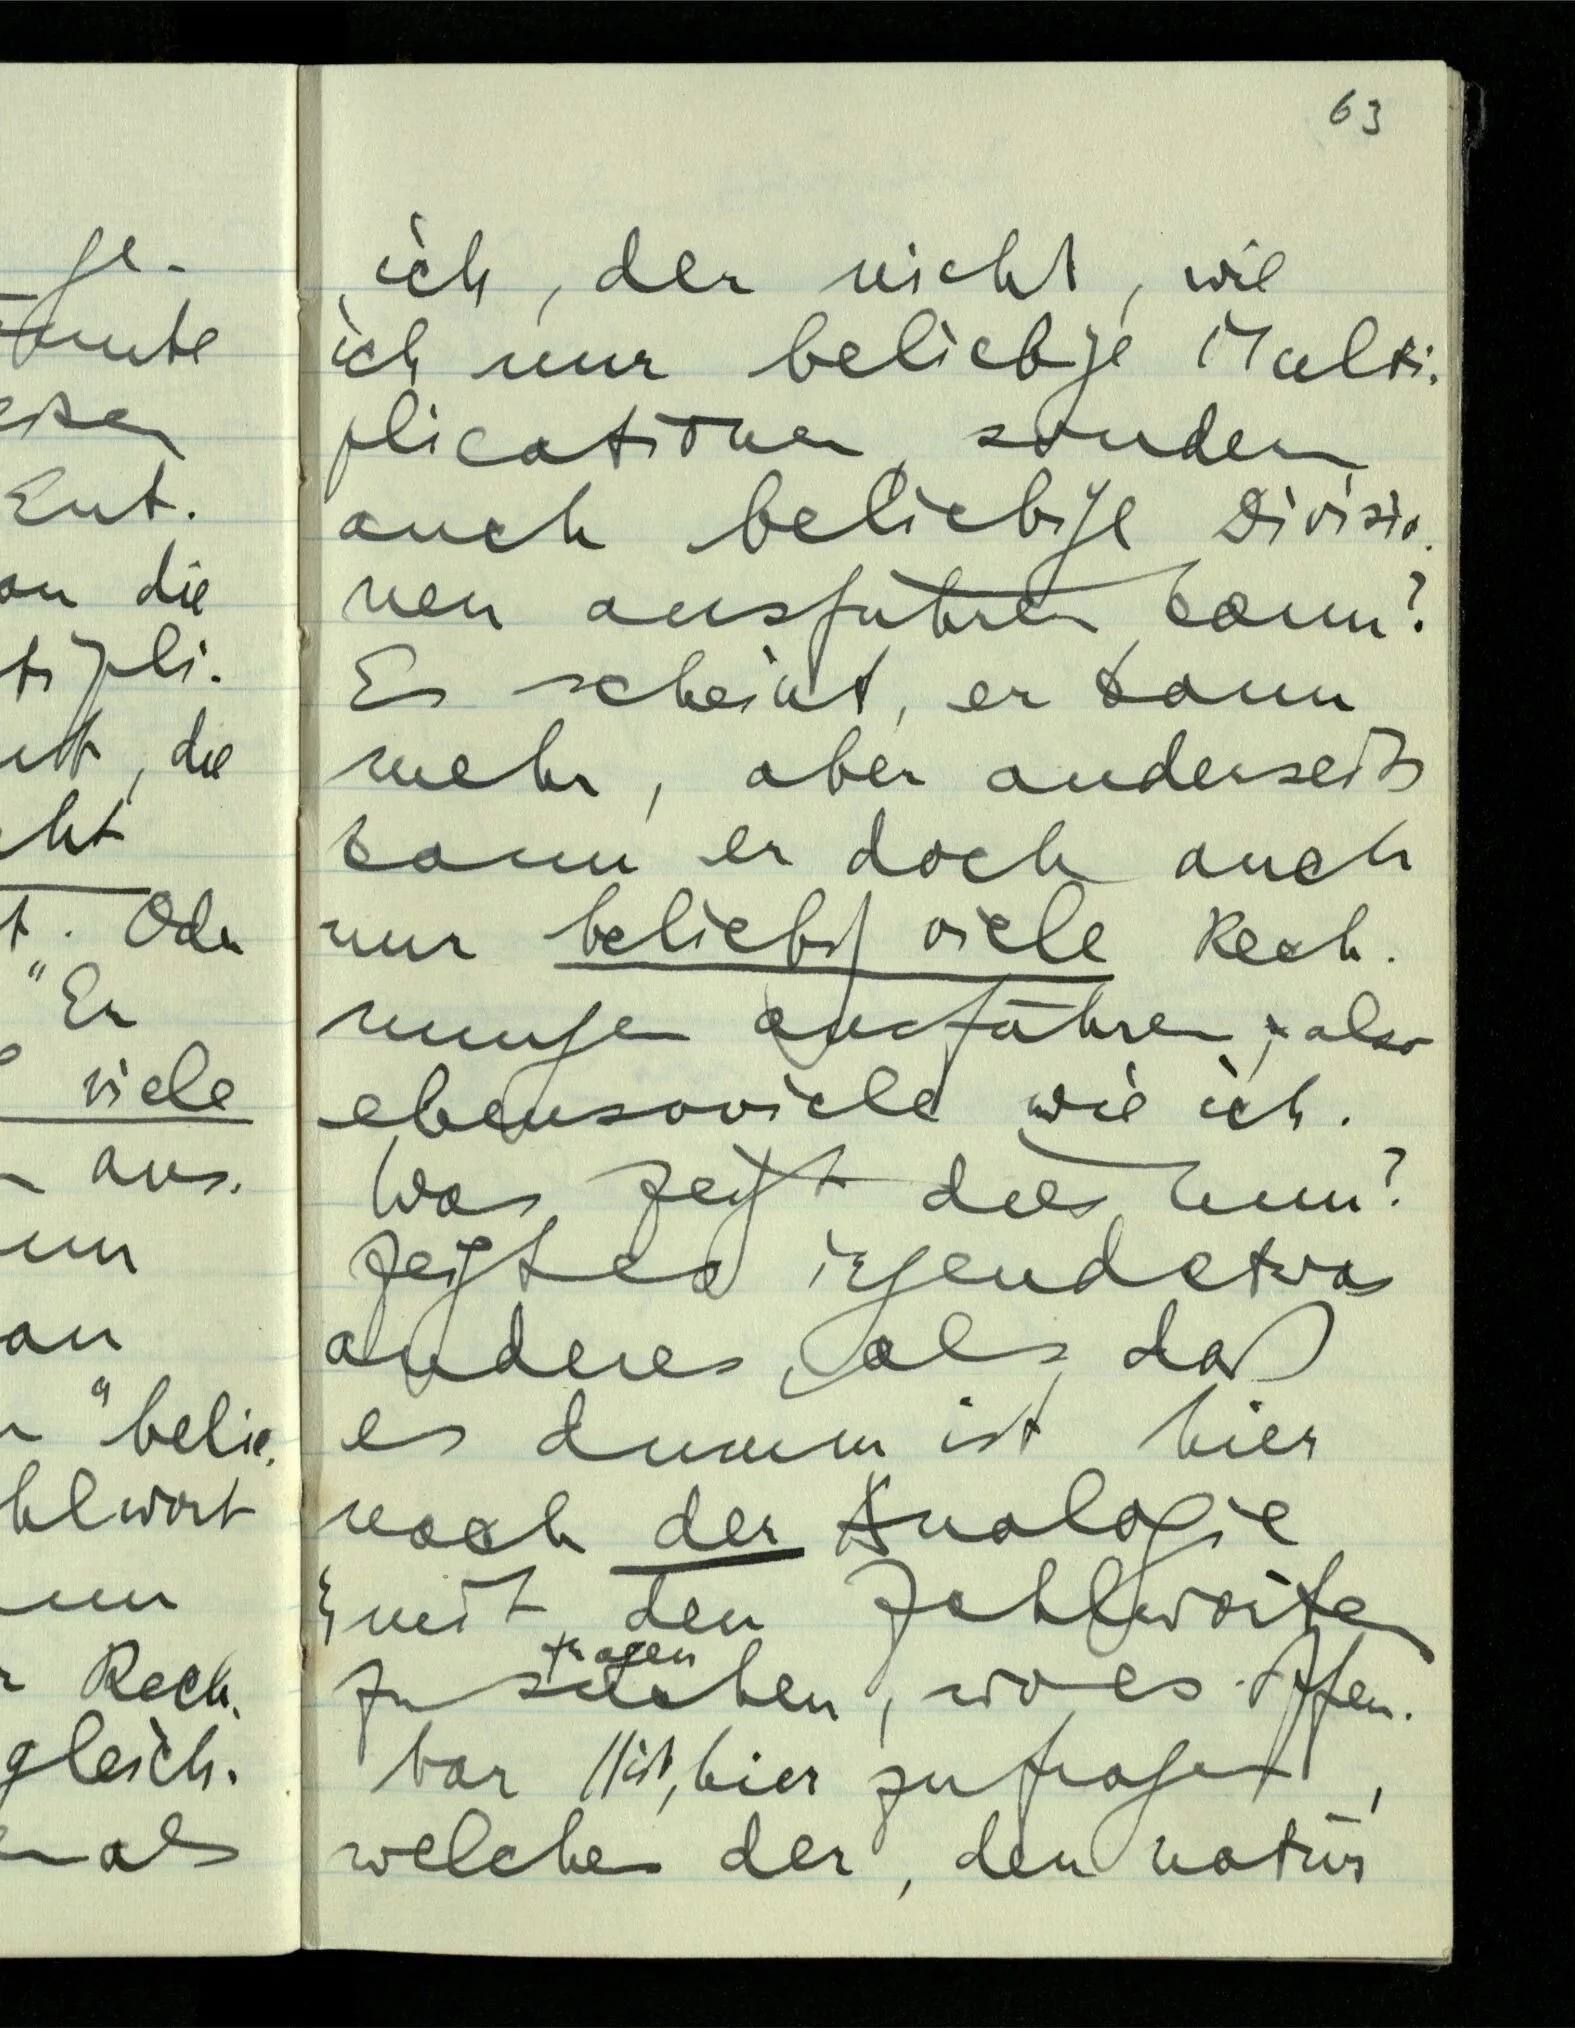 ge-
konnte
Ent.
an die
tipli.
, die
cht
t. Oder
"Er
viele
aus.
nur
an
"belie.
hlwort
nn
Rech.
gleich.
als
63
ich, der nicht, wie
ich nur beliebige Multi.
plicationen sondern
auch beliebige Divisio.
nen ausführen kann?
Es scheint, er kann
mehr, aber anderseits
kann er doch auch
nur beliebig viele Rech.
nungen ausführen, also
ebensoviele wie ich.
Was zeigt dies nun?
Zeigt es irgendetwas
anderes, als daß
es dumm ist hier
nach der Analogie
mit den Zahlworten
fragen
zu suchen, wo es offen.
bar //ist, hier zu fragen,
welches der, den natür